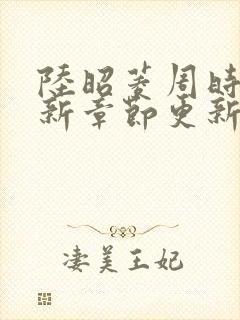 陸昭菱周時
新章節更新
淒美王妃